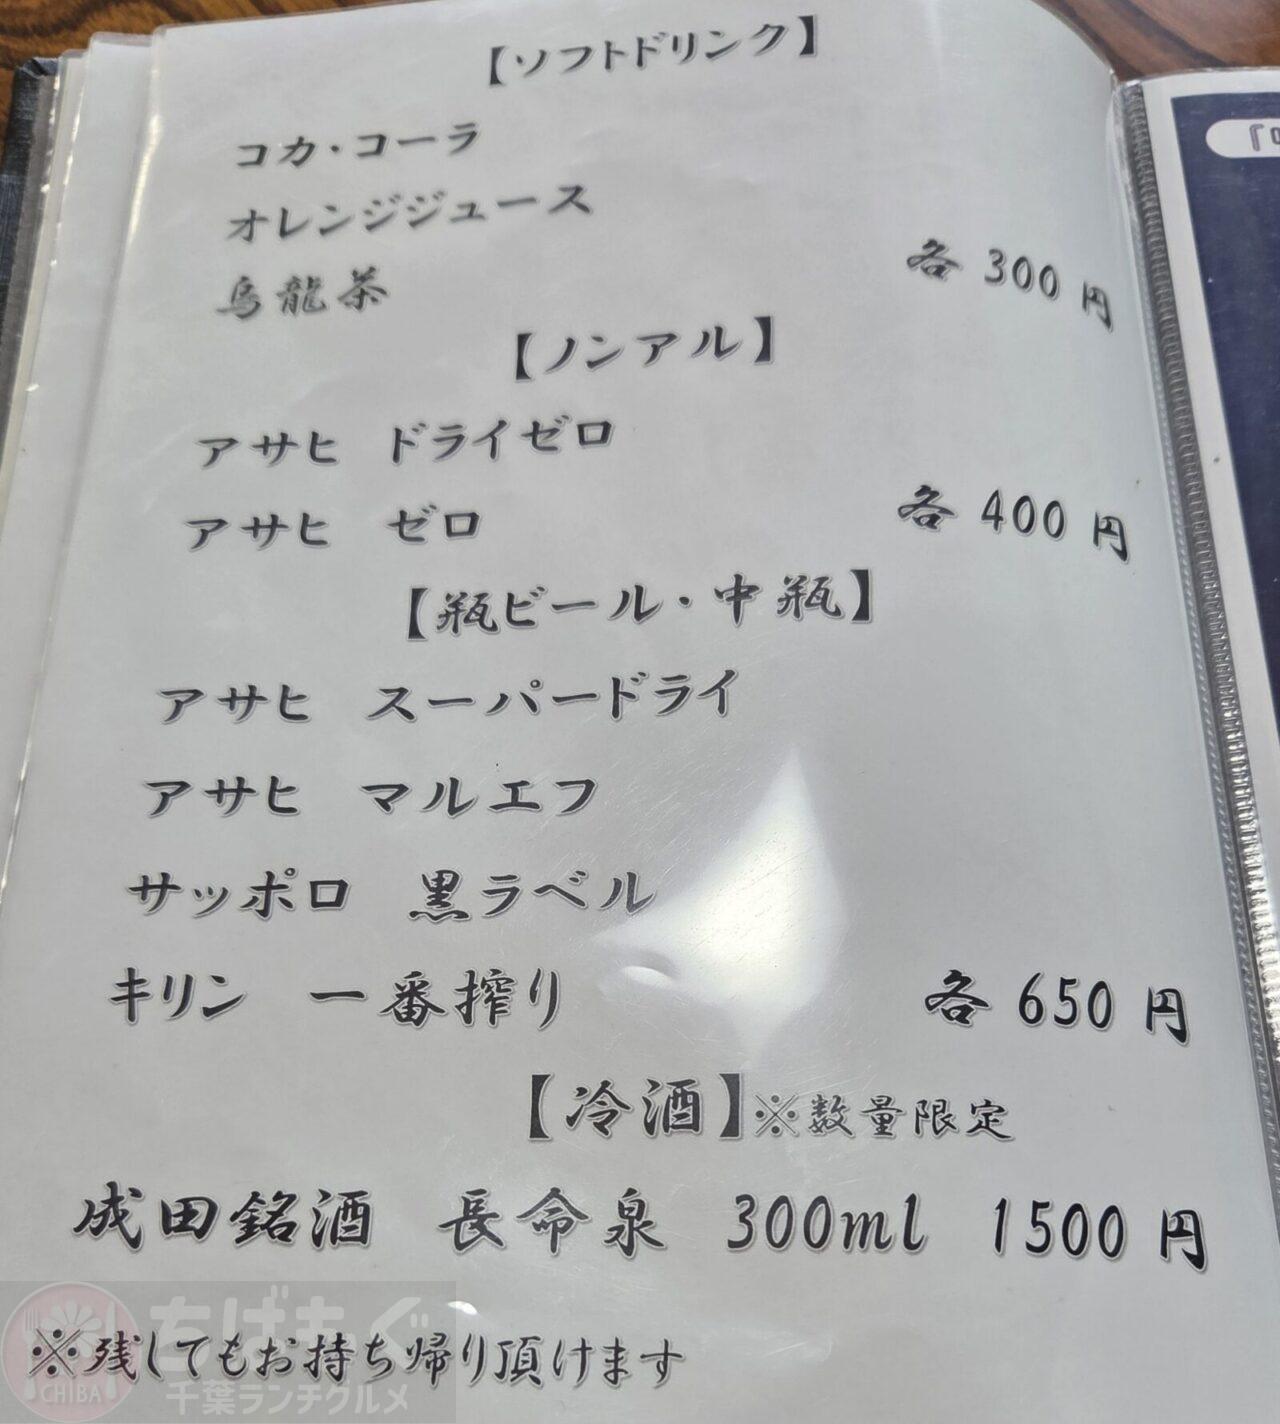 【ソフトドリンク】
コカ・コーラ
オレンジジュース
烏龍茶 各 300 円
【ノンアル】
アサヒ ドライゼロ
アサヒ ゼロ 各 400 円
【瓶ビール・中瓶】
アサヒ スーパードライ
アサヒ マルエフ
サッポロ 黒ラベル
キリン 一番搾り 各 650 円
【冷酒】※数量限定
成田銘酒 長命泉 300ml 1500 円
※残してもお持ち帰り頂けます
ちばもぐ
CHIBA
千葉ランチグルメ